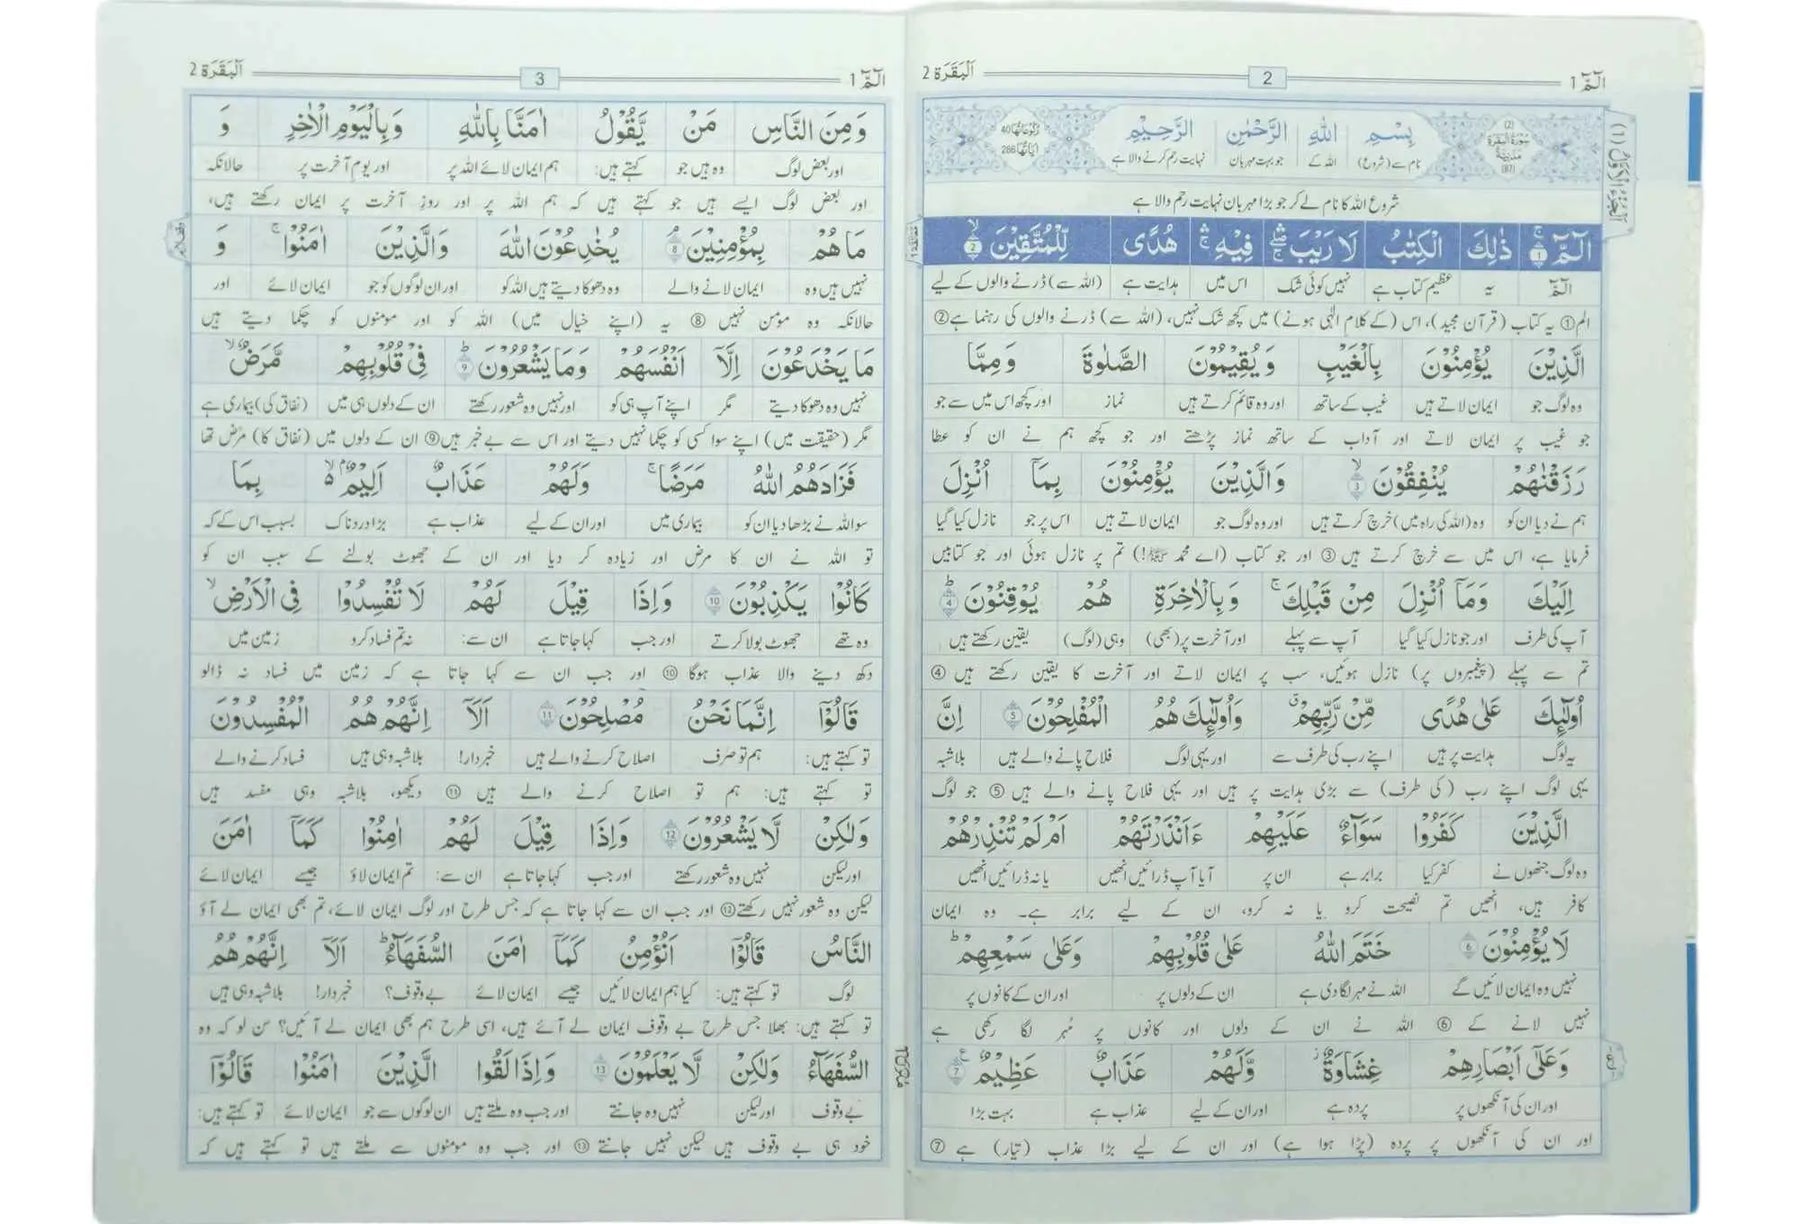 الٓمّٓ 1 2 اَلْبَقَرَة 2
(2) سُوْرَةُ الْبَقَرَةِ مَدَنِيَّةٌ (87) بِسْمِ اللّٰهِ الرَّحْمٰنِ الرَّحِيْمِ رُكُوْعَاتُهَا 40 اٰيَاتُهَا 286
نام سے (شروع) اللہ کے جو بہت مہربان نہایت رحم کرنے والا ہے
شروع اللہ کا نام لے کر جو بڑا مہربان نہایت رحم والا ہے
الٓمّٓ ۚ﴿1﴾ ذٰلِكَ الْكِتٰبُ لَا رَيْبَ ۛۖ فِيْهِ ۛۚ هُدًى لِّلْمُتَّقِيْنَ ۙ﴿2﴾
الٓمّٓ یہ عظیم کتاب ہے نہیں کوئی شک اس میں ہدایت ہے (اللہ سے) ڈرنے والوں کے لیے
الم① یہ کتاب (قرآن مجید)، اس (کے کلام الٰہی ہونے) میں کچھ شک نہیں، (اللہ سے) ڈرنے والوں کی رہنما ہے②
الَّذِيْنَ يُؤْمِنُوْنَ بِالْغَيْبِ وَ يُقِيْمُوْنَ الصَّلٰوةَ وَ مِمَّا
وہ لوگ جو ایمان لاتے ہیں غیب کے ساتھ اور وہ قائم کرتے ہیں نماز اور کچھ اس میں سے جو
جو غیب پر ایمان لاتے اور آداب کے ساتھ نماز پڑھتے اور جو کچھ ہم نے ان کو عطا
رَزَقْنٰهُمْ يُنْفِقُوْنَ ۙ﴿3﴾ وَالَّذِيْنَ يُؤْمِنُوْنَ بِمَآ اُنْزِلَ
ہم نے دیا ان کو وہ (اللہ کی راہ میں) خرچ کرتے ہیں اور وہ لوگ جو ایمان لاتے ہیں اس پر جو نازل کیا گیا
فرمایا ہے، اس میں سے خرچ کرتے ہیں ③ اور جو کتاب (اے محمد ﷺ!) تم پر نازل ہوئی اور جو کتابیں
اِلَيْكَ وَمَآ اُنْزِلَ مِنْ قَبْلِكَ ۚ وَبِالْاٰخِرَةِ هُمْ يُوْقِنُوْنَ ؕ﴿4﴾
آپ کی طرف اور جو نازل کیا گیا آپ سے پہلے اور آخرت پر (بھی) وہی (لوگ) یقین رکھتے ہیں
تم سے پہلے (پیغمبروں پر) نازل ہوئیں، سب پر ایمان لاتے اور آخرت کا یقین رکھتے ہیں ④
اُولٰٓئِكَ عَلٰى هُدًى مِّنْ رَّبِّهِمْ ۗ وَاُولٰٓئِكَ هُمُ الْمُفْلِحُوْنَ ﴿5﴾ اِنَّ
یہ لوگ ہدایت پر ہیں اپنے رب کی طرف سے اور یہی لوگ فلاح پانے والے ہیں بلاشبہ
یہی لوگ اپنے رب (کی طرف) سے بڑی ہدایت پر ہیں اور یہی فلاح پانے والے ہیں ⑤ جو لوگ
الَّذِيْنَ كَفَرُوْا سَوَآءٌ عَلَيْهِمْ ءَاَنْذَرْتَهُمْ اَمْ لَمْ تُنْذِرْهُمْ
وہ لوگ جنھوں نے کفر کیا برابر ہے ان پر آیا آپ ڈرائیں انھیں یا نہ ڈرائیں انھیں
کافر ہیں، انھیں تم نصیحت کرو یا نہ کرو، ان کے لیے برابر ہے۔ وہ ایمان
لَا يُؤْمِنُوْنَ ﴿6﴾ خَتَمَ اللّٰهُ عَلٰى قُلُوْبِهِمْ وَعَلٰى سَمْعِهِمْ ؕ
نہیں وہ ایمان لائیں گے اللہ نے مہر لگا دی ہے ان کے دلوں پر اور ان کے کانوں پر
نہیں لانے کے ⑥ اللہ نے ان کے دلوں اور کانوں پر مُہر لگا رکھی ہے
وَعَلٰٓى اَبْصَارِهِمْ غِشَاوَةٌ ؗ وَّلَهُمْ عَذَابٌ عَظِيْمٌ ﴿7﴾
اور ان کی آنکھوں پر پردہ ہے اور ان کے لیے عذاب ہے بہت بڑا
اور ان کی آنکھوں پر پردہ (پڑا ہوا ہے) اور ان کے لیے بڑا عذاب (تیار) ہے ⑦
الٓمّٓ 1 3 اَلْبَقَرَة 2
وَمِنَ النَّاسِ مَنْ يَّقُوْلُ اٰمَنَّا بِاللّٰهِ وَبِالْيَوْمِ الْاٰخِرِ وَ
اور بعض لوگ وہ ہیں جو کہتے ہیں: ہم ایمان لائے اللہ پر اور یوم آخرت پر حالانکہ
اور بعض لوگ ایسے ہیں جو کہتے ہیں کہ ہم اللہ پر اور روزِ آخرت پر ایمان رکھتے ہیں،
مَا هُمْ بِمُؤْمِنِيْنَ ۘ﴿8﴾ يُخٰدِعُوْنَ اللّٰهَ وَالَّذِيْنَ اٰمَنُوْا ۚ وَ
نہیں ہیں وہ ایمان لانے والے وہ دھوکا دیتے ہیں اللہ کو اور ان لوگوں کو جو ایمان لائے اور
حالانکہ وہ مومن نہیں ⑧ یہ (اپنے خیال میں) اللہ کو اور مومنوں کو چکما دیتے ہیں
مَا يَخْدَعُوْنَ اِلَّآ اَنْفُسَهُمْ وَمَا يَشْعُرُوْنَ ؕ﴿9﴾ فِيْ قُلُوْبِهِمْ مَّرَضٌ ۙ
نہیں وہ دھوکا دیتے مگر اپنے آپ ہی کو اور نہیں وہ شعور رکھتے ان کے دلوں ہی میں (نفاق کی) بیماری ہے
مگر (حقیقت میں) اپنے سوا کسی کو چکما نہیں دیتے اور اس سے بے خبر ہیں⑨ ان کے دلوں میں (نفاق کا) مرض تھا
فَزَادَهُمُ اللّٰهُ مَرَضًا ۚ وَلَهُمْ عَذَابٌ اَلِيْمٌ ۢ ۙ بِمَا
سو اللہ نے بڑھا دیا ان کو بیماری میں اور ان کے لیے عذاب ہے بڑا دردناک بسبب اس کے کہ
تو اللہ نے ان کا مرض اور زیادہ کر دیا اور ان کے جھوٹ بولنے کے سبب ان کو
كَانُوْا يَكْذِبُوْنَ ﴿10﴾ وَاِذَا قِيْلَ لَهُمْ لَا تُفْسِدُوْا فِي الْاَرْضِ ۙ
وہ تھے جھوٹ بولا کرتے اور جب کہا جاتا ہے ان سے: نہ تم فساد کرو زمین میں
دکھ دینے والا عذاب ہوگا ⑩ اور جب ان سے کہا جاتا ہے کہ زمین میں فساد نہ ڈالو
قَالُوْٓا اِنَّمَا نَحْنُ مُصْلِحُوْنَ ﴿11﴾ اَلَآ اِنَّهُمْ هُمُ الْمُفْسِدُوْنَ
تو کہتے ہیں: ہم تو صرف اصلاح کرنے والے ہیں خبردار! بلاشبہ وہی ہیں فساد کرنے والے
تو کہتے ہیں: ہم تو اصلاح کرنے والے ہیں ⑪ دیکھو، بلاشبہ وہی مفسد ہیں
وَلٰكِنْ لَّا يَشْعُرُوْنَ ﴿12﴾ وَاِذَا قِيْلَ لَهُمْ اٰمِنُوْا كَمَآ اٰمَنَ
اور لیکن نہیں وہ شعور رکھتے اور جب کہا جاتا ہے ان سے: تم ایمان لاؤ جیسے ایمان لائے
لیکن وہ شعور نہیں رکھتے⑫ اور جب ان سے کہا جاتا ہے کہ جس طرح اور لوگ ایمان لائے، تم بھی ایمان لے آؤ
النَّاسُ قَالُوْٓا اَنُؤْمِنُ كَمَآ اٰمَنَ السُّفَهَآءُ ؕ اَلَآ اِنَّهُمْ هُمُ
لوگ تو کہتے ہیں: کیا ہم ایمان لائیں جیسے ایمان لائے بے وقوف؟ خبردار! بلاشبہ وہی ہیں
تو کہتے ہیں: بھلا جس طرح بے وقوف ایمان لے آئے ہیں، اسی طرح ہم بھی ایمان لے آئیں؟ سن لو کہ وہ
السُّفَهَآءُ وَلٰكِنْ لَّا يَعْلَمُوْنَ ﴿13﴾ وَاِذَا لَقُوا الَّذِيْنَ اٰمَنُوْا قَالُوْٓا
بے وقوف اور لیکن نہیں وہ جانتے اور جب وہ ملتے ہیں ان لوگوں سے جو ایمان لائے تو کہتے ہیں:
خود ہی بے وقوف ہیں لیکن نہیں جانتے ⑬ اور جب وہ مومنوں سے ملتے ہیں تو کہتے ہیں کہ